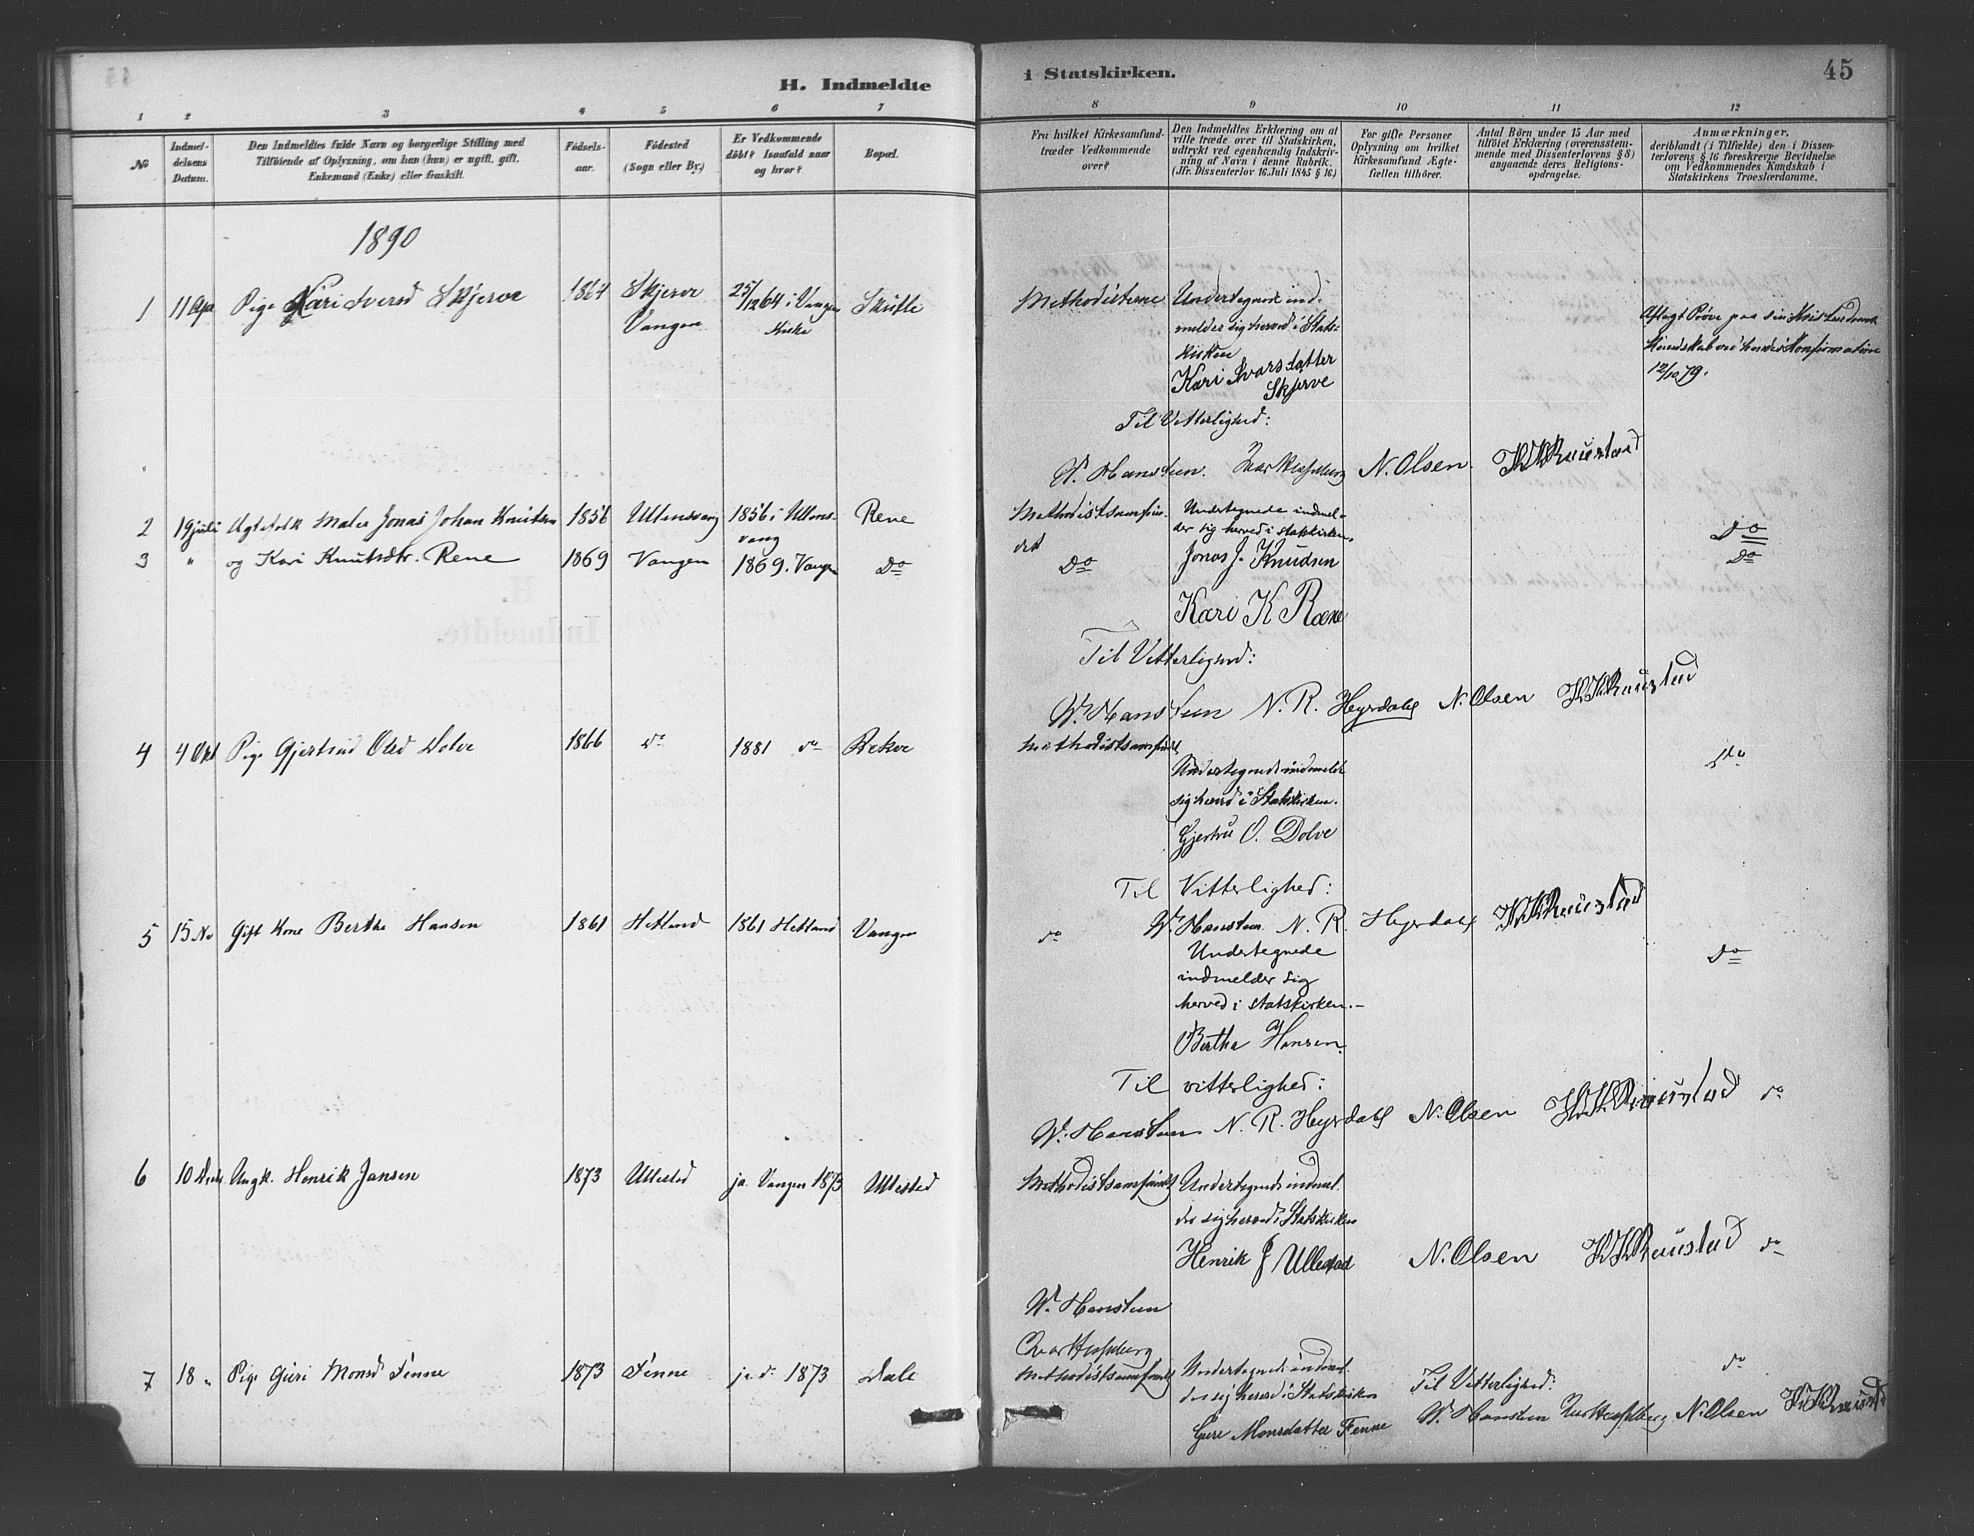 H. Indmeldte
i Statskirken.
45
1 2 3 4 5 6 7 8 9 10 11 12
No
Indmeldelsens Datum.
Den Indmeldtes fulde Navn og borgerlige Stilling med
Tilföiende af Oplysning, om han (hun) er ugift, gift,
Enkemand (Enke) eller fraskilt.
Födsels-
aar.
Födested
(Sogn eller By.)
Er Vedkommende
döbt? Isaafald naar
og hvor?
Bopæl.
Fra hvilket Kirkesamfund
træder Vedkommende
over?
Den Indmeldtes Erklæring om at
ville træde over til Statskirken,
udtrykt ved egenhændig Indskriv-
ning af Navn i denne Rubrik.
(Jfr. Dissenterlov 16. Juli 1845 § 16.)
For gifte Personer
Oplysning om hvilket
Kirkesamfund Ægte-
fællen tilhörer.
Antal Börn under 15 Aar med
tilföiet Erklæring (overensstem-
mende med Dissenterlovens § 8)
angaaende deres Religions-
opdragelse.
Anmærkninger,
deriblandt (i Tilfælde) den i Dissen-
terlovens § 16 foreskrevne Bevidnelse
om Vedkommendes Kundskab i
Statskirkens Troeslærdomme.
1890
1 11 Apr Pige Kari Iversd Skjerve 1864 Skjerve
Vangen
25/12 64 i Vangen
Kirke
Methodisterne
Undertegnede ind-
melder sig herved i Stats-
kirken
Kari Ivarsdatter
Skjerve
Aflagt Prøve paa sin Kristendoms
Kundskab ved hendes Konfirmation
12/10 79.
Til Vitterlighed:
W. Hansteen. N. Olsen. K K Raustad
2 19 juli Ægtefolk Maler Jonas Johan Knutsen 1856 Ullensvang 1856 i Ullens-
vang
Rene
Methodistsamfun-
det
Undertegnede indmel-
der sig herved i statskirken.
Jonas J. Knudsen
Do
3 " og Kari Knutsdtr. Rene 1869 Vangen 1869. Vangen Do Do Do
Kari K Rene
Til Vitterlighed:
W. Hansteen N. R. Heyrdahl N. Olsen K K Raustad
4 4 Okt Pige Gjertrud Olsd Dolve 1866 do 1881 do Rekve
Methodistsamfundet
Undertegnede indmelder
sig herved i Statskirken.
Gjertru O. Dolve
do
Til Vitterlighed:
W. Hansteen N. R. Heyrdahl K K Raustad
5 15 No Gift Kone Berthe Hansen 1861 Hetland 1861 Hetland Vangen
do
Undertegnede
indmelder sig
herved i statskirken.-
Bertha Hansen.
do
Til vitterlighed:
W. Hansteen N. R. Heyrdahl N. Olsen K. K. Raustad do
6 10 Ungk. Henrik Jansen 1873 Ullestad ja Vangen 1873 Ullestad
Methodistsamfundet
Undertegnede indmel-
der sig herved i Statskirken
Henrik J Ullestad N. Olsen K K Raustad do
W. Hansteen
7 18 " Pige Guri Monsd Finne 1873 Finne ja do 1873 Dale
Methodistsamfundet
Undertegnede indmel-
der sig herved i Statskirken
Guri Monsdatter Finne
do
Til Vitterlighed:
W. Hansteen N. Olsen K K Raustad